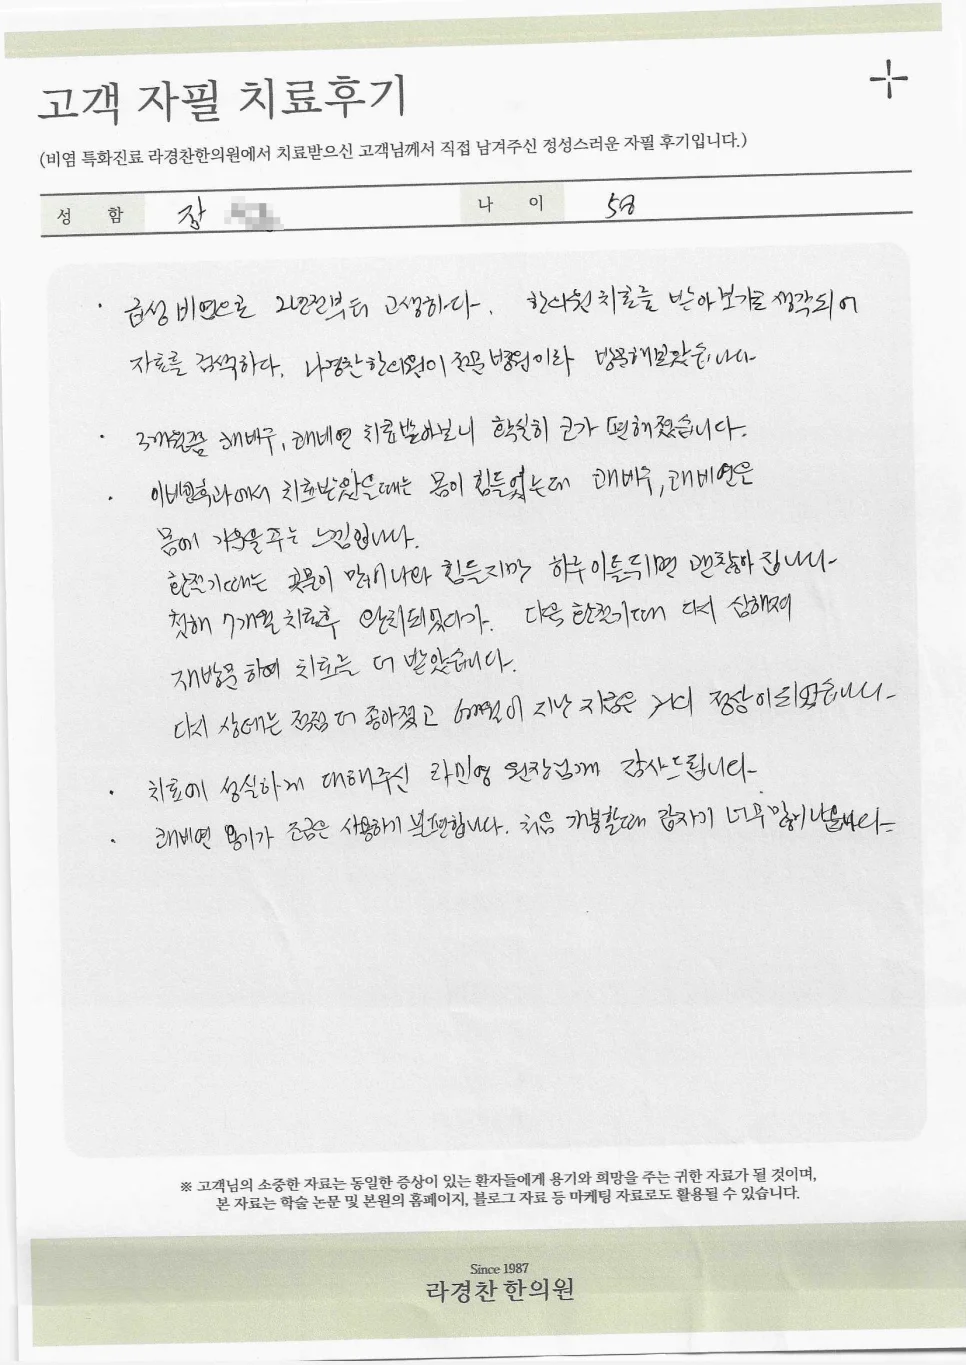 고객 자필 치료후기
(비염 특화진료 라경찬한의원에서 치료받으신 고객님께서 직접 남겨주신 정성스러운 자필 후기입니다.)
성 함 장 나 이 58
· 급성 비염으로 2년전부터 고생하다. 한의원 치료를 받아보기로 생각되어
자료를 검색하다. 라경찬한의원이 전문병원이라 방문해보았습니다.
· 3개월쯤 쾌배수, 쾌비연 치료받아보니 확실히 코가 편해졌습니다.
· 이비인후과에서 치료받았을때는 몸이 힘들었는데 쾌비연은
몸에 기운을 주는 느낌입니다.
환절기때는 콧물이 많이 나와 힘들지만 하루이틀되면 괜찮아집니다.
첫해 7개월 치료후 완치되었다가. 다음 환절기때 다시 심해져
재방문하여 치료를 더 받았습니다.
다시 상태는 점점 더 좋아졌고 6개월이 지난 지금은 거의 정상이 되었습니다.
· 치료에 성실하게 대해주신 라민영 원장님께 감사드립니다.
· 쾌비연 용기가 조금은 사용하기 불편합니다. 처음 개봉할때 갑자기 너무 많이 나옵니다.
※ 고객님의 소중한 자료는 동일한 증상이 있는 환자들에게 용기와 희망을 주는 귀한 자료가 될 것이며,
본 자료는 학술 논문 및 본원의 홈페이지, 블로그 자료 등 마케팅 자료로도 활용될 수 있습니다.
Since 1987
라경찬한의원